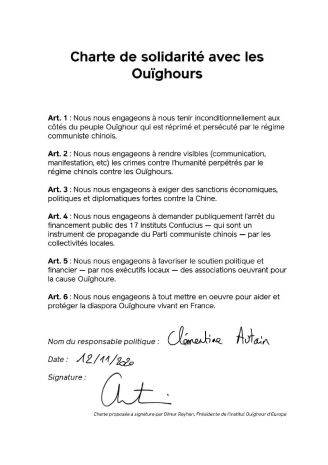 Charte de solidarité avec les
Ouïghours
Art. 1 : Nous nous engageons à nous tenir inconditionnellement aux
côtés du peuple Ouïghour qui est réprimé et persécuté par le régime
communiste chinois.
Art. 2 : Nous nous engageons à rendre visibles (communication,
manifestation, etc) les crimes contre l'humanité perpétrés par le
régime chinois contre les Ouïghours.
Art. 3 : Nous nous engageons à exiger des sanctions économiques,
politiques et diplomatiques fortes contre la Chine.
Art. 4 : Nous nous engageons à demander publiquement l'arrêt du
financement public des 17 Instituts Confucius — qui sont un
instrument de propagande du Parti communiste chinois — par les
collectivités locales.
Art. 5 : Nous nous engageons à favoriser le soutien politique et
financier — par nos exécutifs locaux — des associations oeuvrant pour
la cause Ouïghoure.
Art. 6 : Nous nous engageons à tout mettre en oeuvre pour aider et
protéger la diaspora Ouïghoure vivant en France.
Nom du responsable politique : Clémentine Autain
Date : 12/11/2020
Signature :
Charte proposée à signature par Dilnur Reyhan, Présidente de l'Institut Ouïghour d'Europe